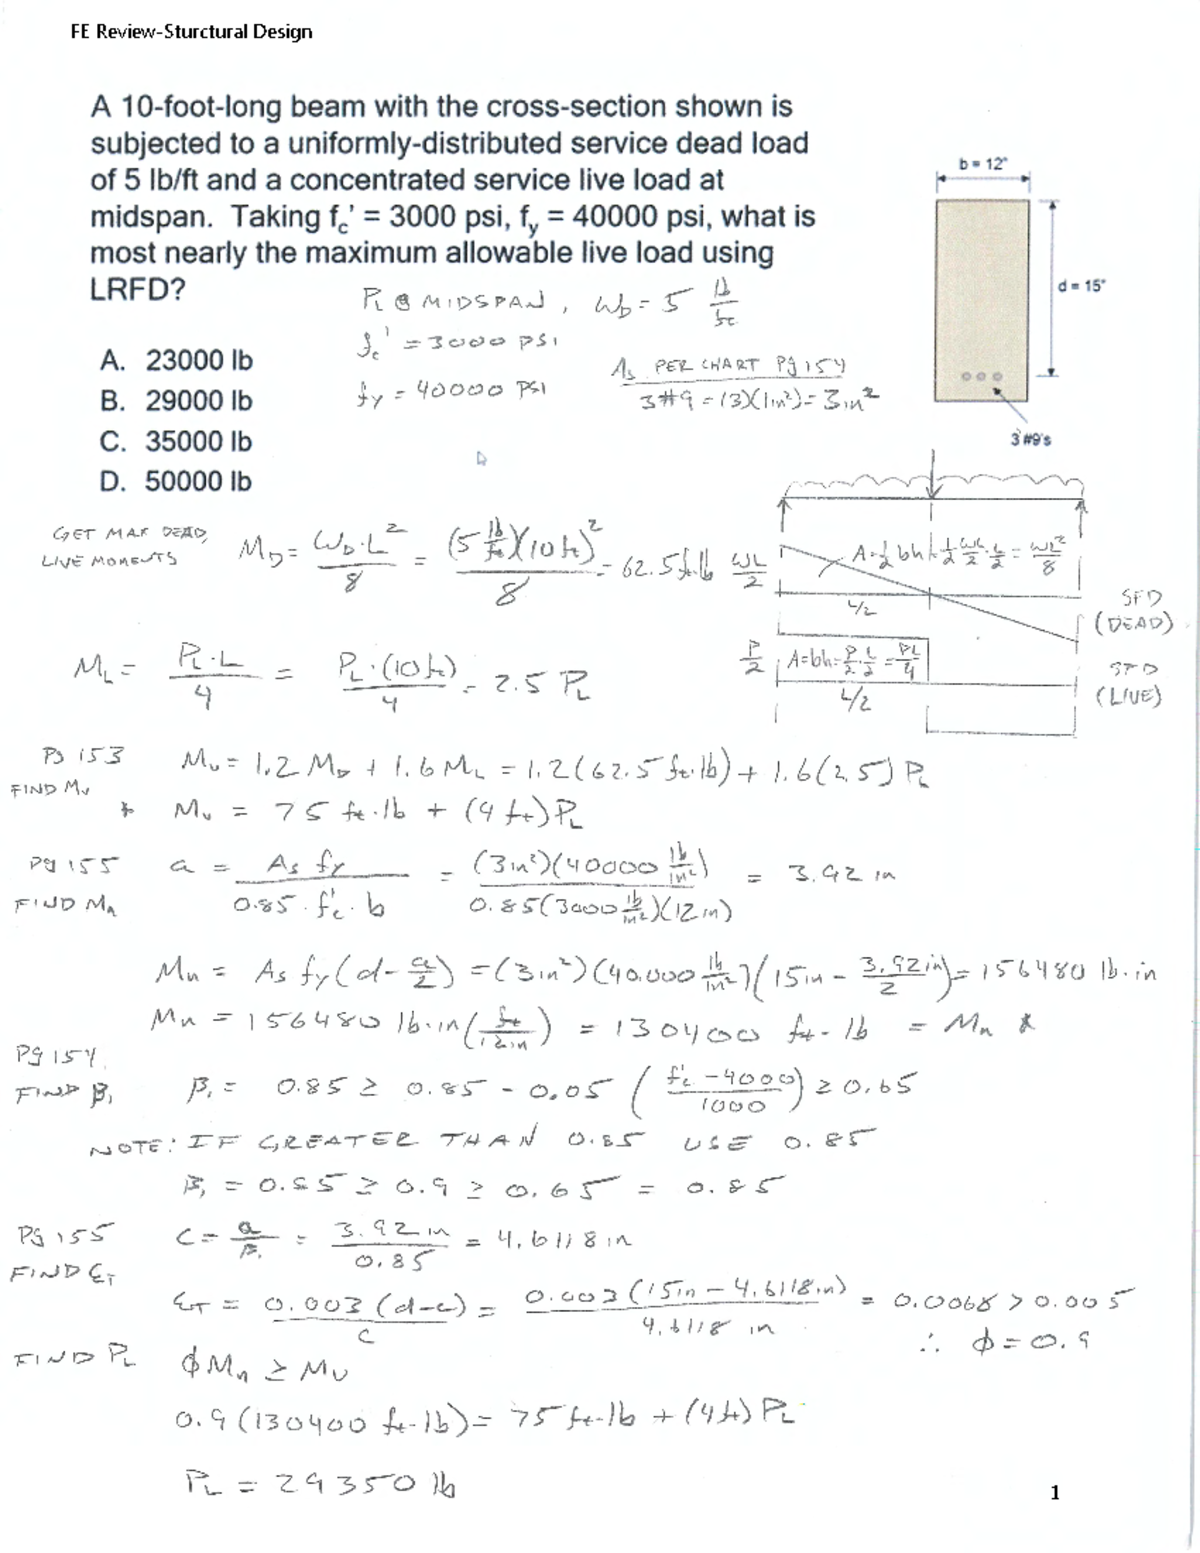 FE Review-Sturctural Design
A 10-foot-long beam with the cross-section shown is
subjected to a uniformly-distributed service dead load
of 5 lb/ft and a concentrated service live load at
midspan. Taking fc' = 3000 psi, fy = 40000 psi, what is
most nearly the maximum allowable live load using
LRFD?
b = 12"
d = 15"
3 #9's
PL @ MIDSPAN, WD = 5 lb/ft
fc' = 3000 PSI
fy = 40000 PSI
As PER CHART Pg 154
3#9 = (3)(1in²) = 3in²
A. 23000 lb
B. 29000 lb
C. 35000 lb
D. 50000 lb
GET MAX DEAD,
LIVE MOMENTS
MD = WD·L²/8 = (5 lb/ft)(10 ft)²/8 = 62.5 ft·lb
WL/2
A=½bh=½ WL/2·L/2 = WL²/8
L/2
SFD
(DEAD)
ML = PL·L/4 = PL·(10 ft)/4 = 2.5 PL
P/2
A=bh=P/2·L/2=PL/4
L/2
SFD
(LIVE)
Pg 153
FIND Mu
Mu = 1.2 MD + 1.6 ML = 1.2(62.5 ft·lb) + 1.6(2.5) PL
* Mu = 75 ft·lb + (4 ft) PL
Pg 155
FIND Mn
a = As fy / 0.85·f'c·b = (3in²)(40000 lb/in²) / 0.85(3000 lb/in²)(12in) = 3.92 in
Mn = As fy(d-a/2) = (3in²)(40,000 lb/in²)(15in - 3.92in/2) = 156480 lb·in
Mn = 156480 lb·in(ft/12in) = 130400 ft-lb = Mn *
Pg 154
FIND β1
β1 = 0.85 ≥ 0.85 - 0.05 (f'c - 4000/1000) ≥ 0.65
NOTE: IF GREATER THAN 0.85 USE 0.85
β1 = 0.85 ≥ 0.9 ≥ 0.65 = 0.85
Pg 155
FIND ЄT
C = a/β1 = 3.92 in/0.85 = 4.6118 in
ЄT = 0.003(d-c)/c = 0.003(15in - 4.6118in)/4.6118 in = 0.0068 > 0.005
∴ ϕ = 0.9
FIND PL
ϕMn ≥ MU
0.9(130400 ft-lb) = 75 ft-lb + (4ft) PL
PL = 29350 lb
1